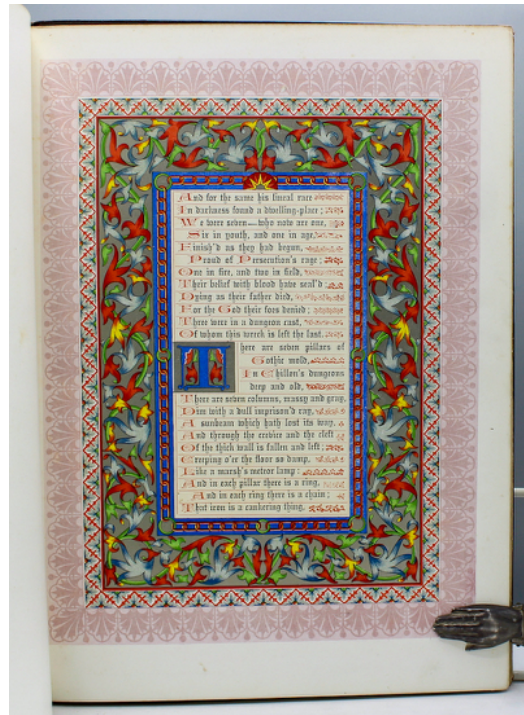 And for the same his lineal race
In darkness found a dwelling-place;
We were seven—who now are one,
Six in youth, and one in age,
Finish'd as they had begun,
Proud of Persecution's rage;
One in fire, and two in field,
Their belief with blood have seal'd:
Dying as their father died,
For the God their foes denied;
Three were in a dungeon cast,
Of whom this wreck is left the last.
There are seven pillars of
Gothic mold,
In Chillon's dungeons
deep and old,
There are seven columns, massy and gray,
Dim with a dull imprison'd ray,
A sunbeam which hath lost its way,
And through the crevice and the cleft
Of the thick wall is fallen and left;
Creeping o'er the floor so damp,
Like a marsh's meteor lamp:
And in each pillar there is a ring,
And in each ring there is a chain;
That iron is a cankering thing,